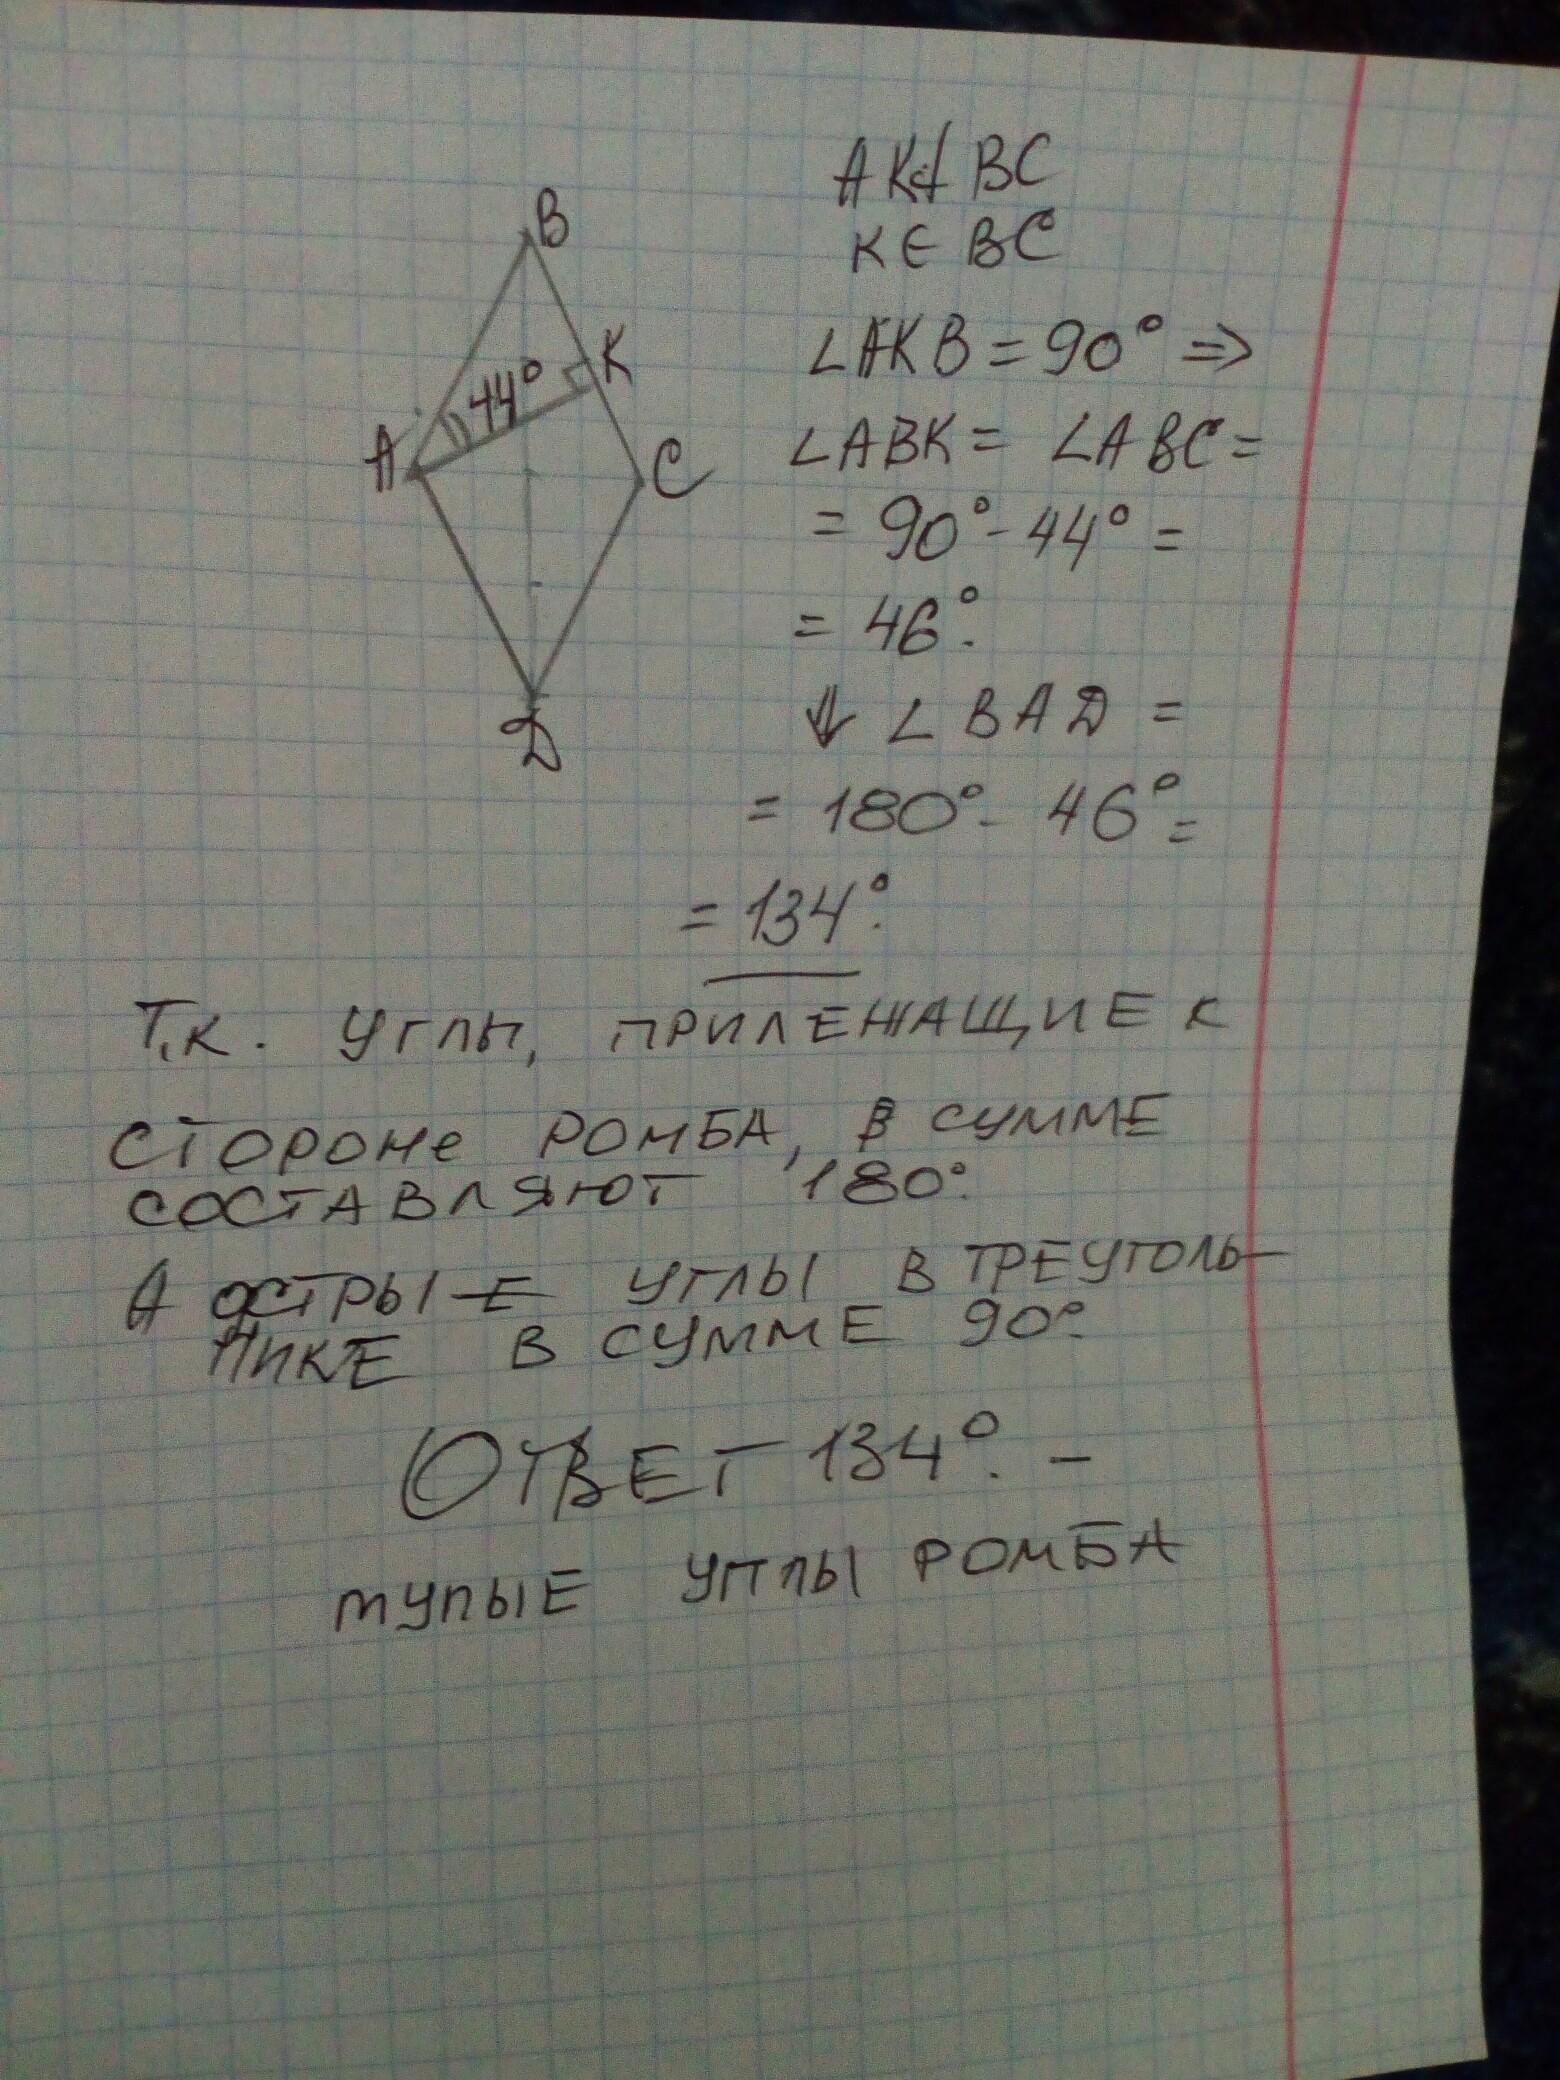 B
K
44°
A
C
D
AK⊥BC
K∈BC
∠AKB=90°⇒
∠ABK=∠ABC=
=90°-44°=
=46°.
⇓∠BAD=
=180°-46°=
=134°.
Т.к. углы, ПРИЛЕЖАЩИЕ К
СТОРОНе РОМБА, В СУММЕ
СОСТАВЛЯЮТ 180°.
А ОСТРЫЕ УГЛЫ В ТРЕУГОЛЬ-
НИКЕ В СУММЕ 90°.
ОТВЕТ 134°. –
ТУПЫЕ УГЛЫ РОМБА